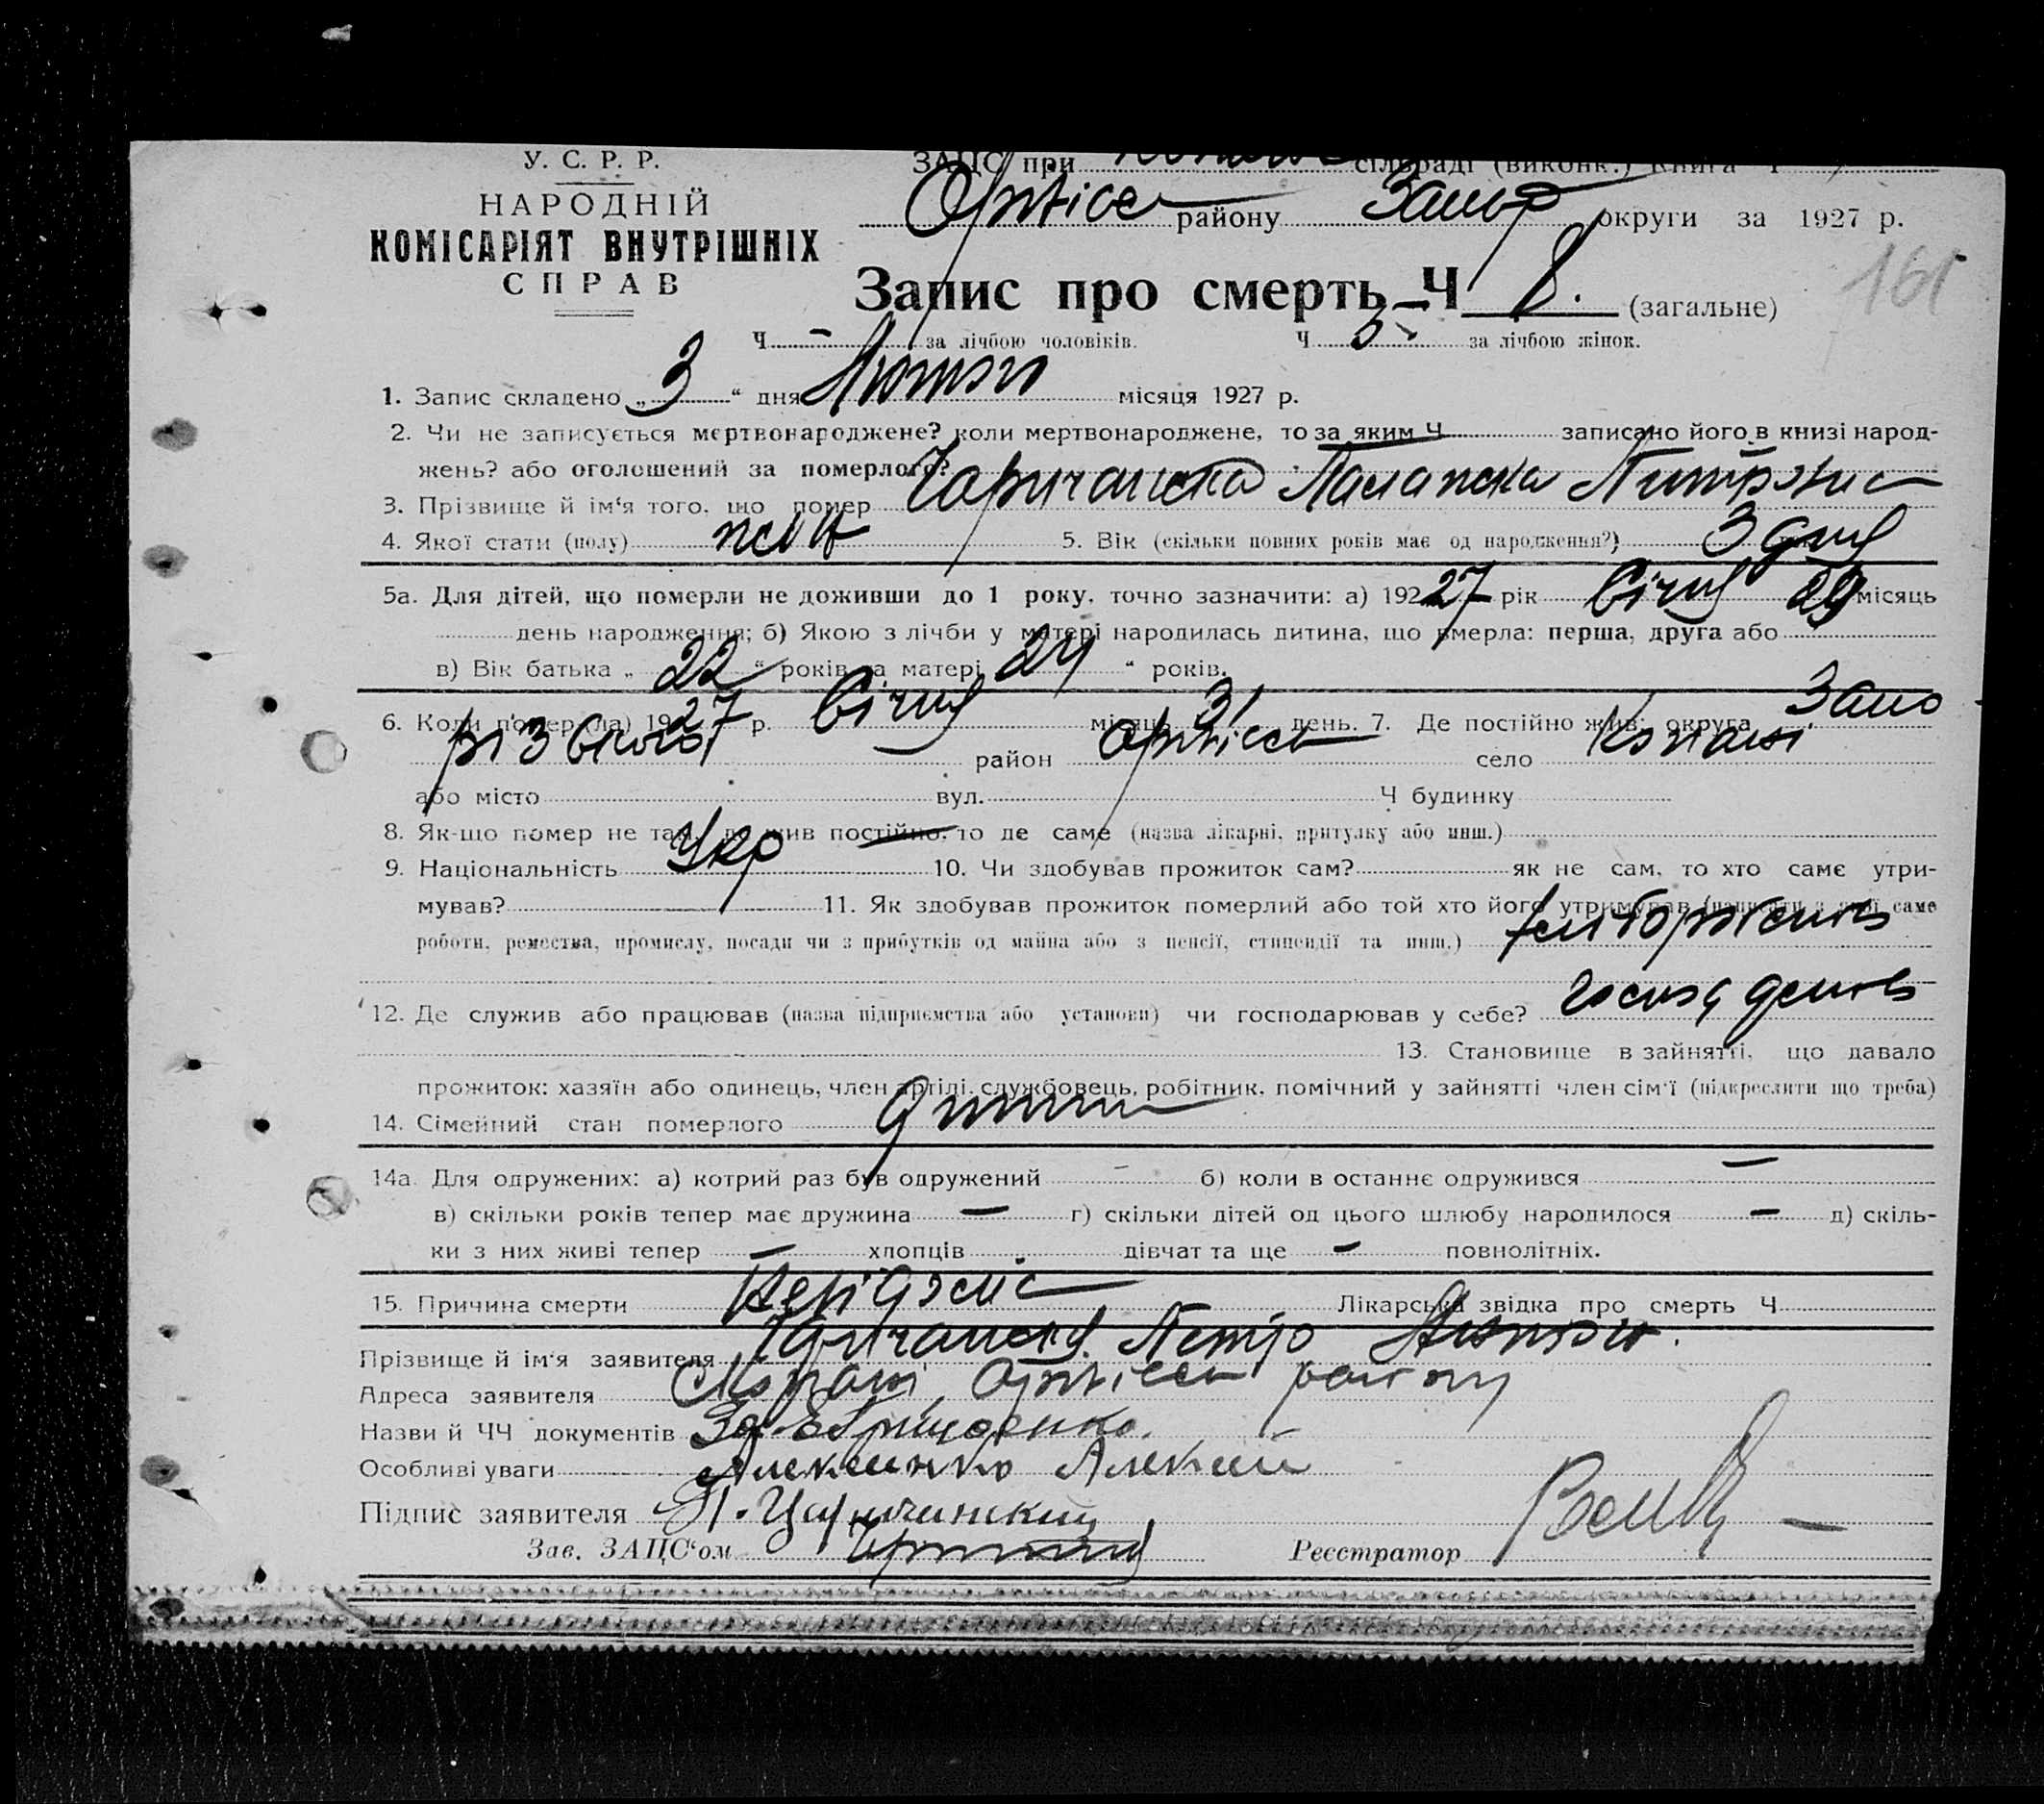 У. С. Р. Р.
НАРОДНІЙ
КОМІСАРІЯТ ВНУТРІШНІХ
СПРАВ
ЗАЦС при сільраді (виконк.) Книга Ч
Оріхівс району Запор округи за 1927 р.
161
Запис про смерть Ч 8. (загальне)
Ч - за лічбою чоловіків. Ч 3 за лічбою жінок.
1. Запис складено „ 3 “ дня Лютого місяця 1927 р.
2. Чи не записується мертвонароджене? коли мертвонароджене, то за яким Ч записано його в книзі народ-
жень? або оголошений за померлого?
3. Прізвище й ім‘я того, що помер Петровна
4. Якої статі (полу) жін 5. Вік (скільки повних років має од народження?) 3 дні
5а. Для дітей, що померли не доживши до 1 року, точно зазначити: а) 192 27 рік Січня 29 місяць
день народження; б) Якою з лічби у матері народилась дитина, що вмерла: перша, друга або
в) Вік батька „ 22 “ років та матері 24 “ років.
6. Коли помер(ла) 19 27 р. Січня місяць 31 день. 7. Де постійно жив: округа Запо
різька район Оріхівськ село Копані
або місто вул. Ч будинку
8. Як-що помер не там, де жив постійно, то де саме (назва лікарні, притулку або инш.)
9. Національність Укр 10. Чи здобував прожиток сам? як не сам, то хто саме утри-
мував? 11. Як здобував прожиток померлий або той хто його утримував (написати з якої саме
роботи, ремества, промислу, посади чи з прибутків од майна або з пенсії, стипендії та инш.)
12. Де служив або працював (назва підприємства або установи) чи господарював у себе?
13. Становище в зайнятті, що давало
прожиток: хазяїн або одинець, член артілі, службовець, робітник, помічний у зайнятті член сім‘ї (підкреслити що треба)
14. Сімейний стан померлого дитина
14а. Для одружених: а) котрий раз був одружений - б) коли в останнє одружився -
в) скільки років тепер має дружина - г) скільки дітей од цього шлюбу народилося - д) скіль-
ки з них живі тепер - хлопців дівчат та ще - повнолітніх.
15. Причина смерти Лікарська звідка про смерть Ч
Прізвище й ім‘я заявителя Петро
Адреса заявителя Копані Оріхівськ району
Назви й ЧЧ документів
Особливі уваги Алексій
Підпис заявителя П. Царичинский
Зав. ЗАЦС‘ом Реєстратор